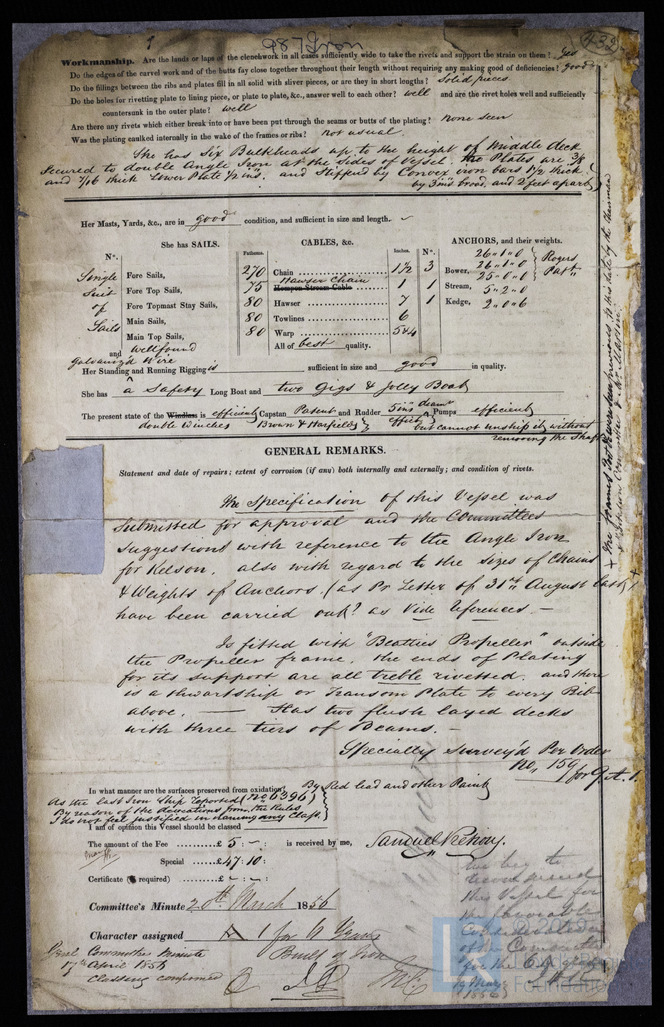 987 Iron
439
Workmanship. Are the lands or laps of the clenchwork in all cases sufficiently wide to take the rivets and support the strain on them? yes
Do the edges of the carvel work and of the butts fay close together throughout their length without requiring any making good of deficiencies? good
Do the fillings between the ribs and plates fill in all solid with sliver pieces, or are they in short lengths? Solid pieces
Do the holes for rivetting plate to lining piece, or plate to plate, &c., answer well to each other? well and are the rivet holes well and sufficiently
countersunk in the outer plate? well
Are there any rivets which either break into or have been put through the seams or butts of the plating? none seen
Was the plating caulked internally in the wake of the frames or ribs? not usual.
She has Six Bulkheads up to the height of Middle deck
Secured to double Angle Iron at the sides of Vessel. the Plates are 3/8
and 7/16 thick Lower Plate 1/2 ins. and Stiffend by Convex iron bars 1 1/2 thick
by 3 ins broad, and 2 feet apart
Her Masts, Yards, &c., are in good condition, and sufficient in size and length.
She has SAILS.
CABLES, &c.
ANCHORS, and their weights.
N°.
Fathoms.
Inches.
N°.
Single Suit of Sails
Fore Sails,
Fore Top Sails,
Fore Topmast Stay Sails,
Main Sails,
Main Top Sails,
and well found
270 Chain 1 1/2
75 Hempen Stream Cable Hawser Chain 1
80 Hawser 7
80 Towlines 6
80 Warp 5 & 4
All of best quality.
3 Bower, 26 " 1 " 0
26 " 1 " 0
25 " 0 " 0
Rogers Patt.
1 Stream, 5 " 2 " 0
1 Kedge, 2 " 0 " 6
galvanized Wire
Her Standing and Running Rigging is sufficient in size and good in quality.
She has a Safety Long Boat and two Gigs & Jolly Boat
The present state of the Windlass is efficient Capstan Patent and Rudder 5 ins diamr Pumps efficient
double Winches Brown & Harfields effict but cannot unship it without
removing the Shaft
GENERAL REMARKS.
Statement and date of repairs; extent of corrosion (if any) both internally and externally; and condition of rivets.
The Specification of this Vessel was
Submitted for approval and the Committees
Suggestions with reference to the Angle Iron
for Kelson, also with regard to the sizes of Chains
& Weights of Anchors, (as Pr Letter of 31st August last,)
have been carried out as Vide
Is fitted with "Beatties Propeller" outside
the Propeller frame, the ends of Plating
for its support are all treble rivetted, and there
is a thwartship or Transom Plate to every Rib
above. — Has two flush layed decks
with three tiers of Beams. —
Specially Survey'd Per Order
No. 159
In what manner are the surfaces preserved from oxidation? By Red lead and other Paint
As the last Iron Ship reported (No 6396)
By reason of the deviations from the Rules
I do not feel justified in naming any Class.
I am of opinion this Vessel should be classed
The amount of the Fee £ 5 : - : is received by me,
Special £ 47 : 10 :
Certificate (if required) £ - : - :
Committee's Minute 20th March 1856
Character assigned A 1 for 6 Years
Built of Iron
Committee Minute
17th April 1856
Classing confirmed
the Vessel for
the favorable
Consideration
of the Committee
for the 6 A grade
19 May
1856
Foundation